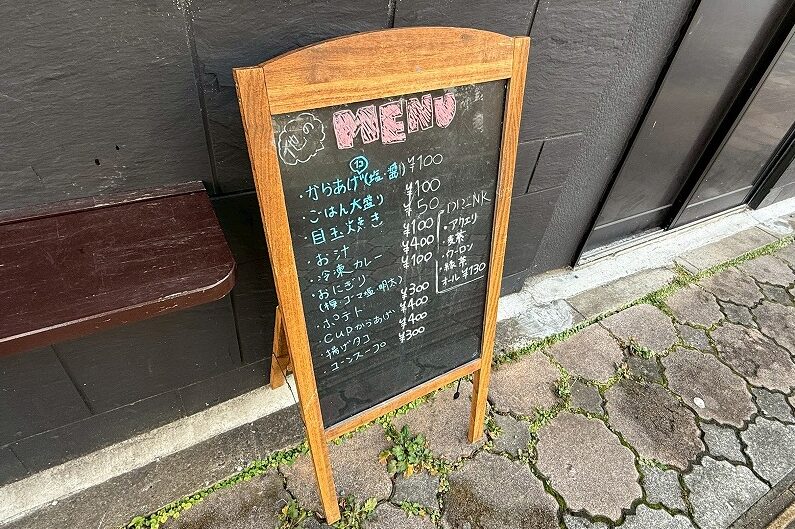 他の MENU
・からあげ(塩・醤) ¥100
・ごはん大盛り ¥100
・目玉焼き ¥50
・お汁 ¥100
・冷凍カレー ¥400
・おにぎり ¥100
(梅・ゴマ塩・明太)
・ポテト ¥300
・CUPからあげ ¥400
・揚げタコ ¥400
・コーンスープ ¥300
DRINK
・アクエリ
・麦茶
・ウーロン
・緑茶
オール¥130